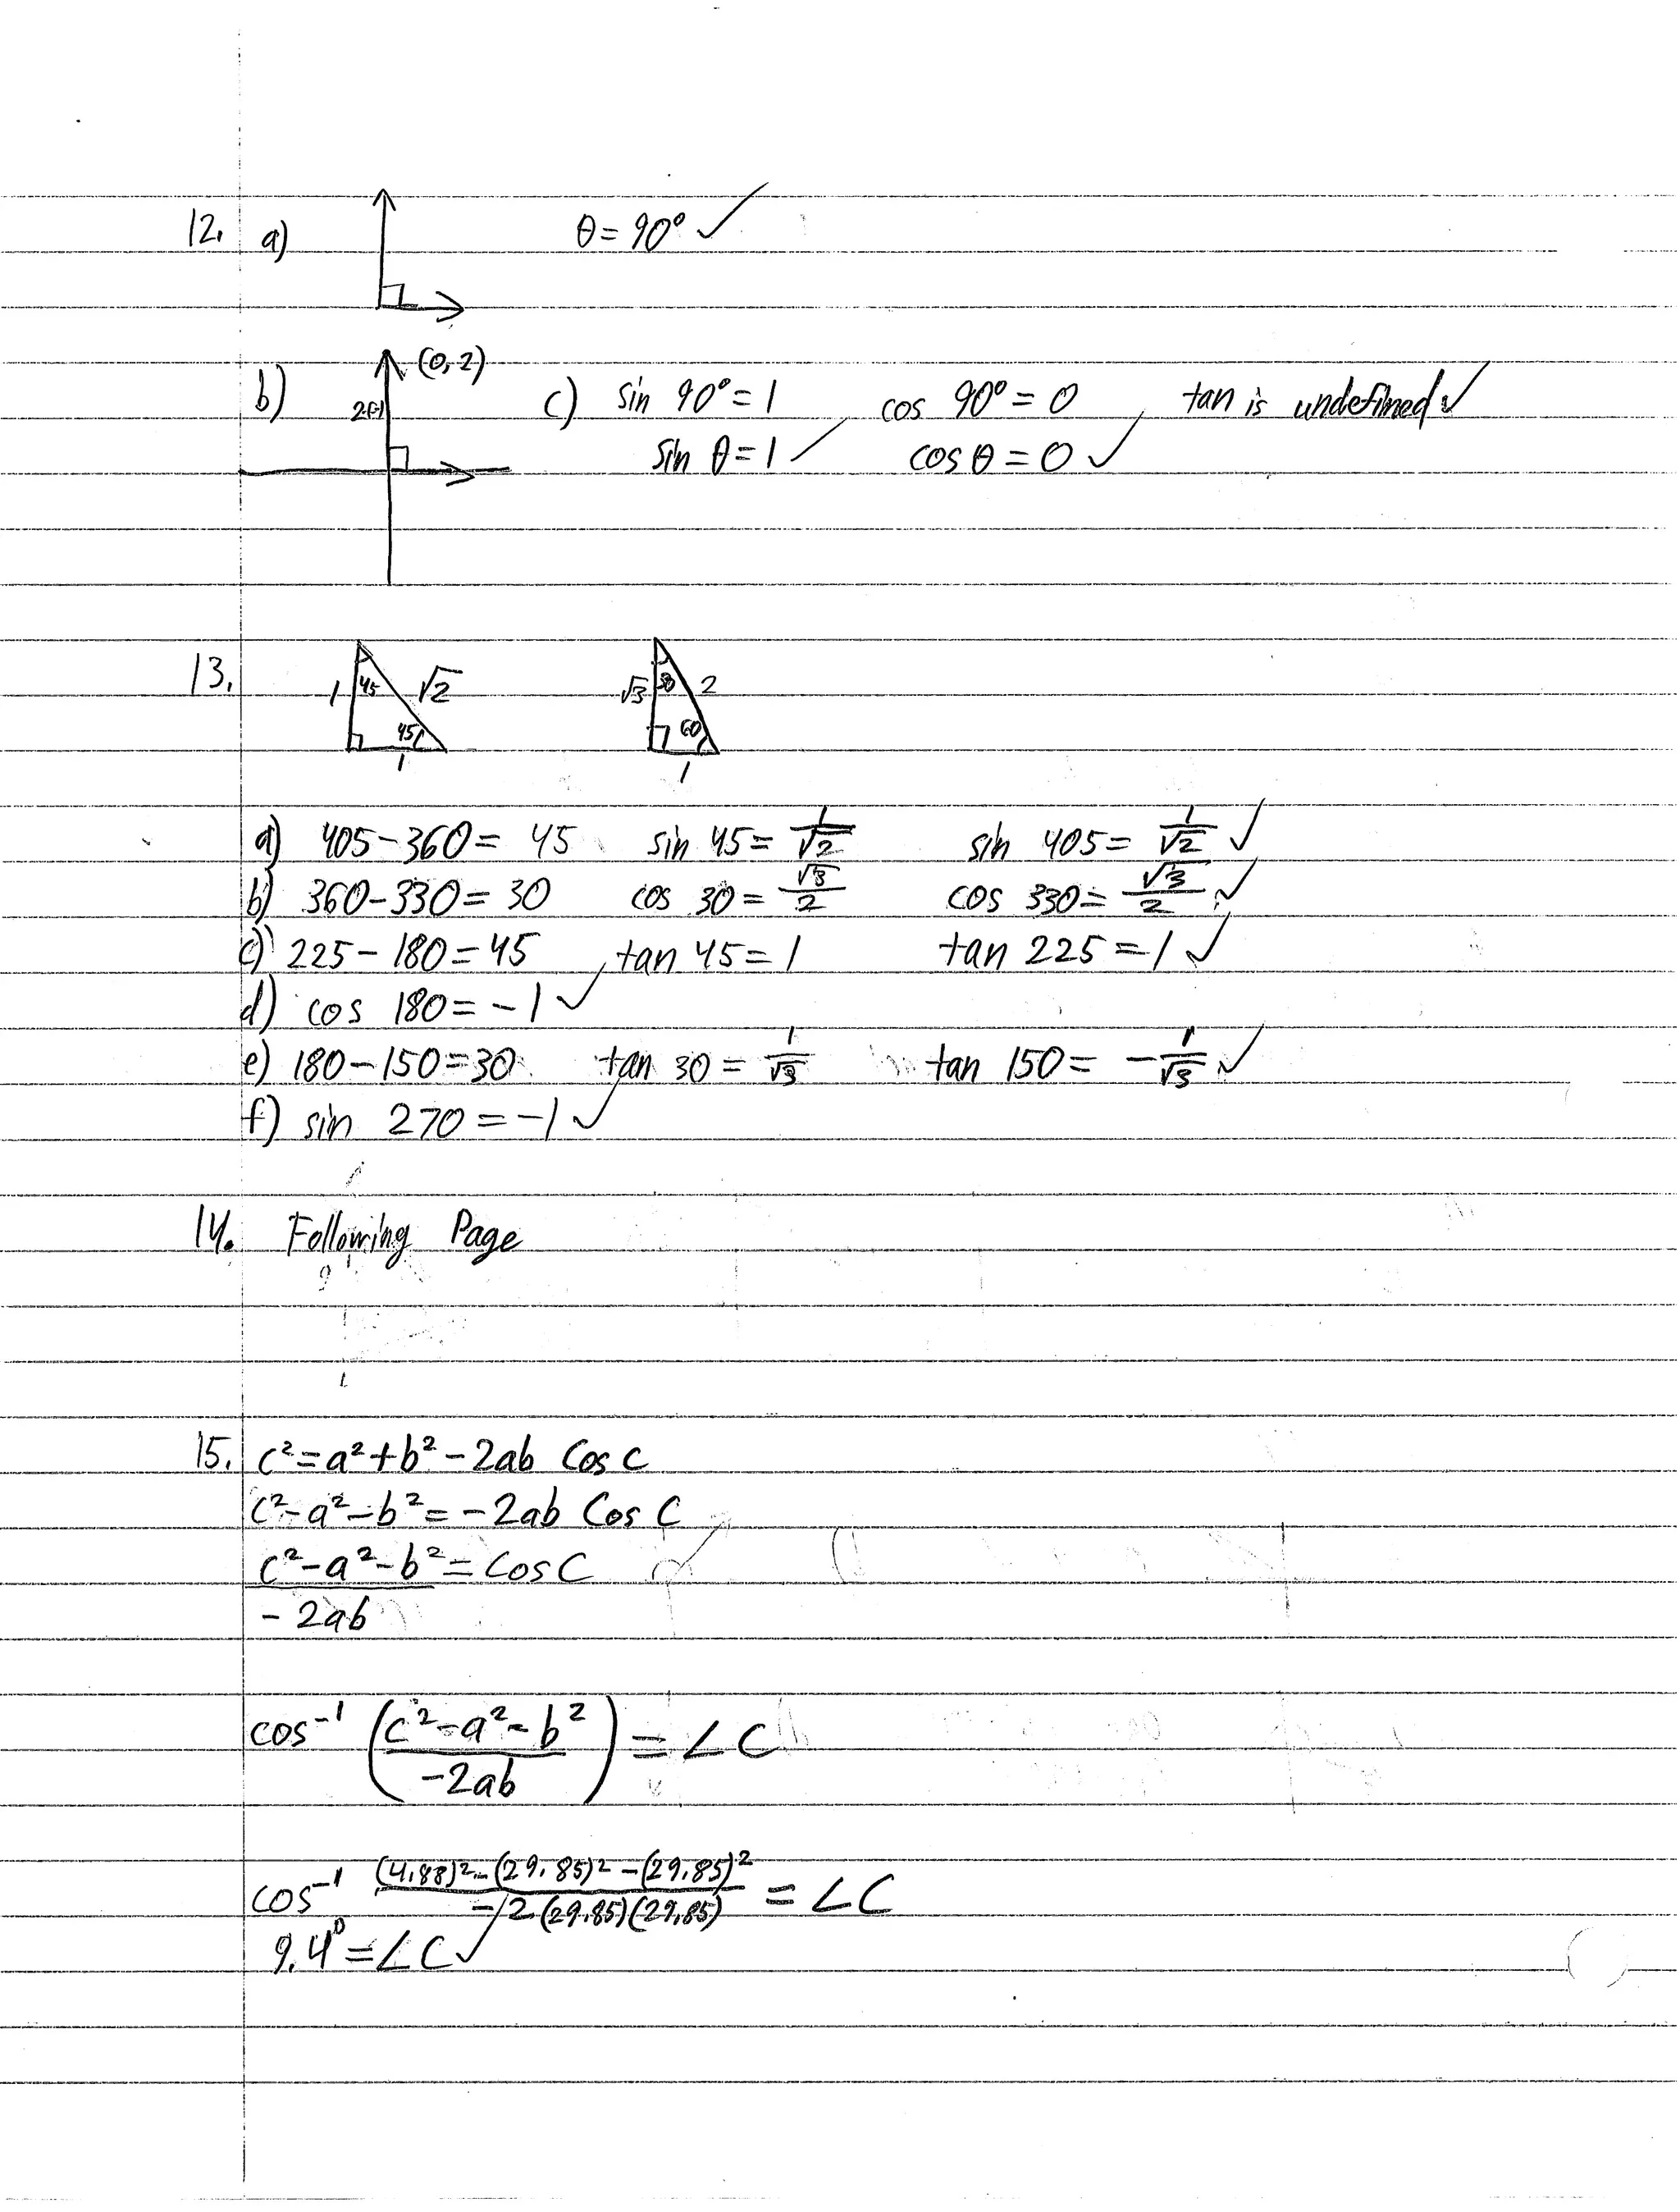 12. a) θ = 90° ✓
b) (0, 2) c) sin 90° = 1 cos 90° = 0 tan is undefined ✓
sin θ = 1 ✓ cos θ = 0 ✓
13. 1 45 √2 45 1 √3 30 2 60 1
a) 405 - 360 = 45 sin 45 = 1/√2 sin 405 = 1/√2 ✓
b) 360 - 330 = 30 cos 30 = √3/2 cos 330 = √3/2 ✓
c) 225 - 180 = 45 tan 45 = 1 tan 225 = 1 ✓
d) cos 180 = -1 ✓
e) 180 - 150 = 30 tan 30 = 1/√3 tan 150 = -1/√3 ✓
f) sin 270 = -1 ✓
14. Following Page
15. c² = a² + b² - 2ab Cos C
c² - a² - b² = -2ab Cos C
c² - a² - b² = Cos C
- 2ab
cos⁻¹ (c² - a² - b² / -2ab) = ∠C
cos⁻¹ (4.88)² - (29.85)² - (29.85)² / -2(29.85)(29.85) = ∠C
9.4° = ∠C ✓